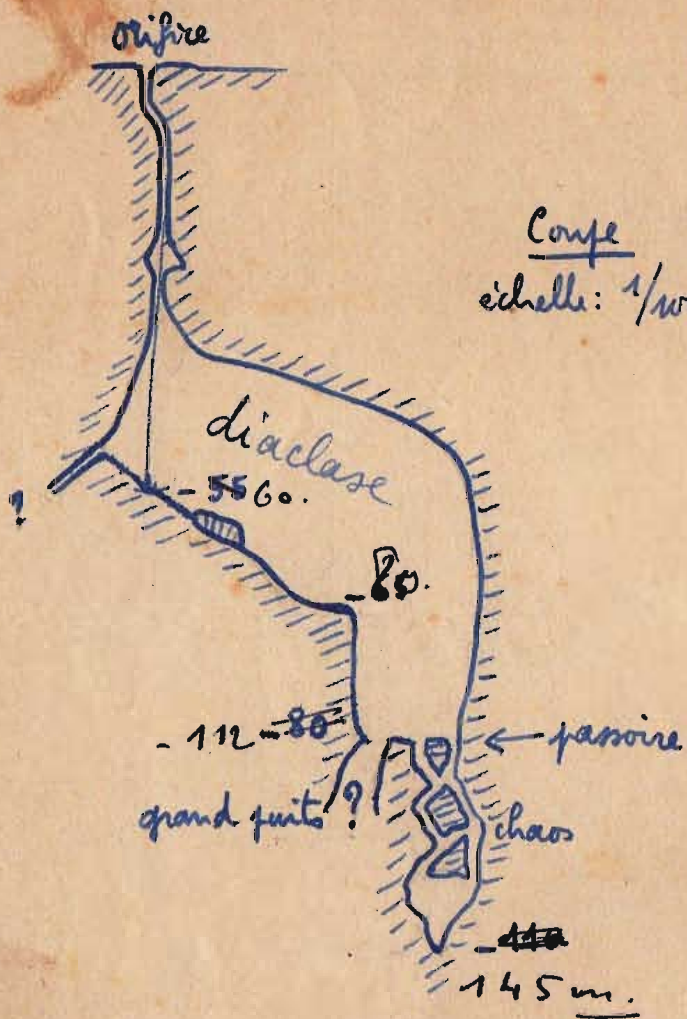 orifice
Coupe
échelle: 1/10
diaclase
?
- 55 60.
- 80.
- 112 - 80
← passoire
grand puits ?
chaos
- 110
145 m.